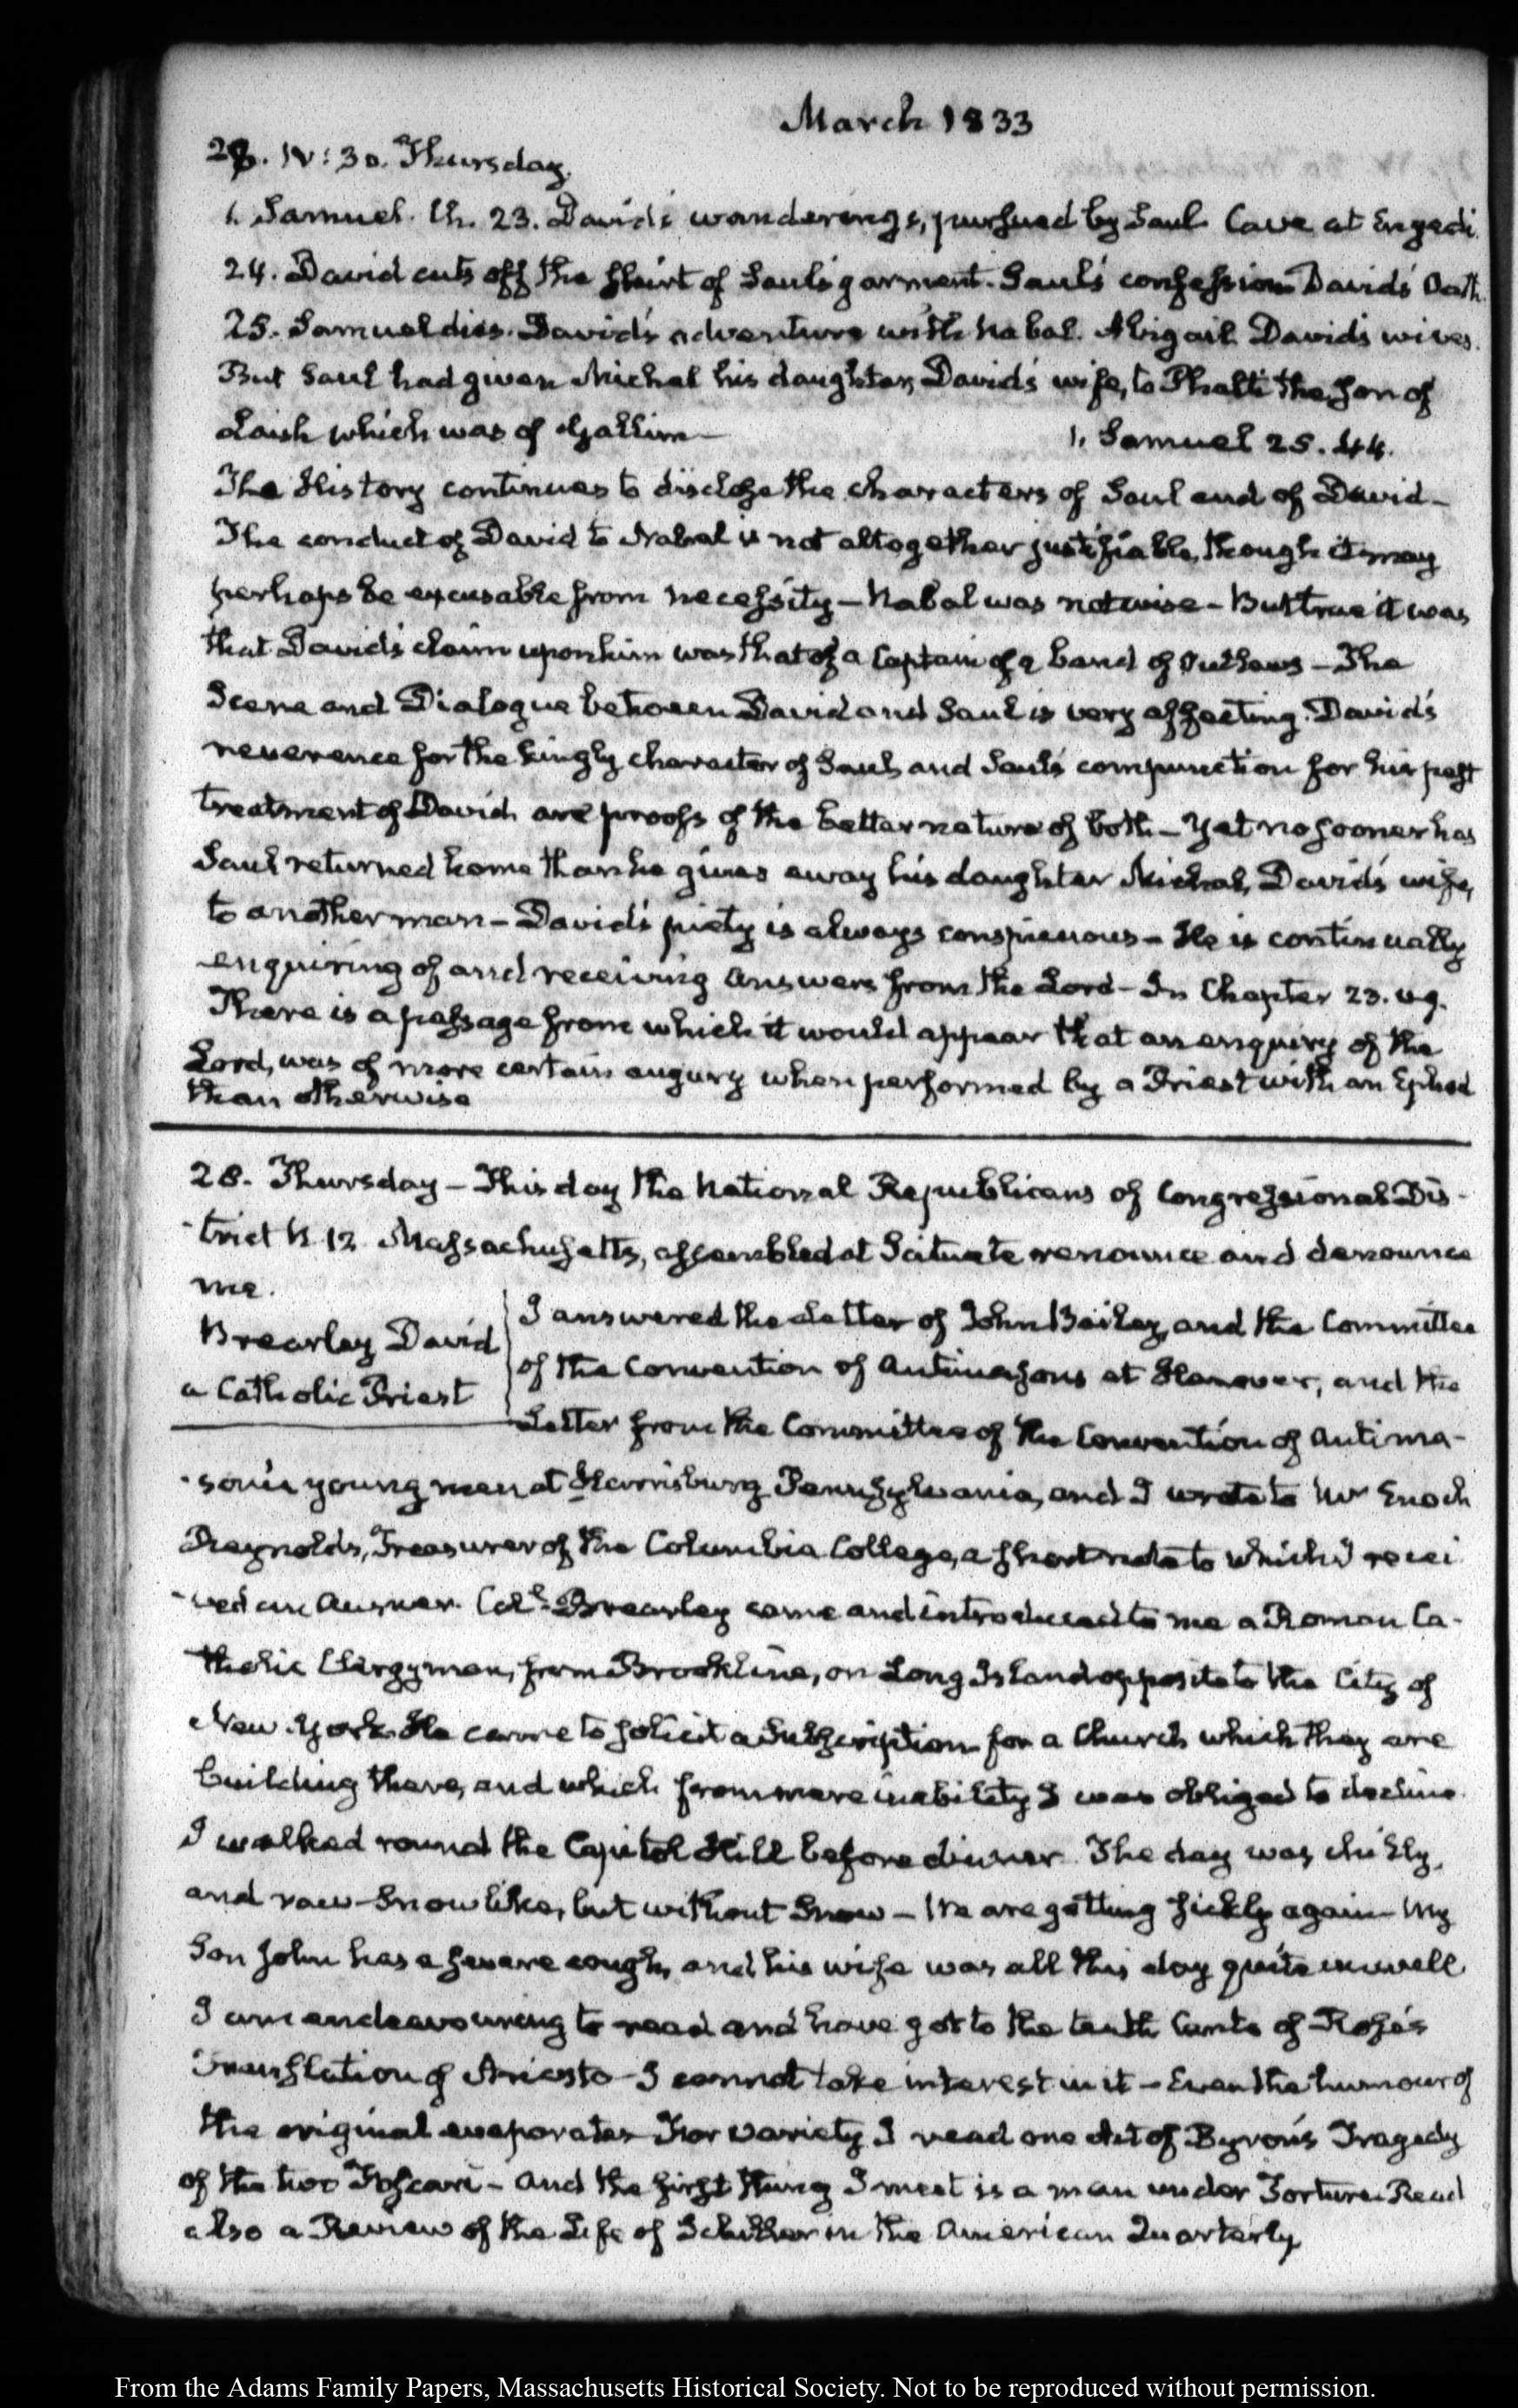 March 1833
28. IV: 30. Thursday.
1. Samuel. Ch. 23. David's wanderings, pursued by Saul. Cave at Engedi.
24. David cuts off the skirt of Saul's garment. Saul's confession David's Oath.
25. Samuel dies. David's adventure with Nabal. Abigail. David's wives.
But Saul had given Michal his daughter, David's wife, to Phalti the son of
Laish which was of Gallim— 1. Samuel 25. 44.
The History continues to disclose the characters of Saul and of David—
The conduct of David to Nabal is not altogether justifiable, though it may
perhaps be excusable from necessity— Nabal was not wise— But true it was
that David's claim upon him was that of a Captain of a band of Outlaws— The
Scene and Dialogue between David and Saul is very affecting. David's
reverence for the kingly character of Saul, and Saul's compunction for his past
treatment of David are proofs of the better nature of both— Yet no sooner has
Saul returned home than he gives away his daughter Michal, David's wife,
to another man— David's piety is always conspicuous— He is continually
enquiring of and receiving answers from the Lord— In Chapter 23. v 9.
There is a passage from which it would appear that an enquiry of the
Lord, was of more certain augury when performed by a Priest with an Ephod
than otherwise
28. Thursday— This day the National Republicans of Congressional Dis-
-trict N. 12 Massachusetts, assembled at Scituate renounce and denounce
me.
Brearley David
a Catholic Priest
I answered the Letter of John Bailey, and the Committee
of the Convention of Antimasons at Hanover, and the
Letter from the Committee of the Convention of Antima-
-sonic young men at Harrisburg Pennsylvania, and I wrote to Mr Enoch
Reynolds, Treasurer of the Columbia College, a short note to which I recei
-ved an Answer. Coll. Brearley came and introduced to me a Roman Ca-
-tholic Clergyman, from Brookline, on Long Island opposite to the City of
New York. He came to solicit a Subscription for a Church which they are
building there, and which from mere inability I was obliged to decline.
I walked round the Capitol Hill before dinner. The day was chilly,
and raw— Snow like, but without Snow— We are getting sickly again— My
Son John has a severe cough, and his wife was all this day quite unwell
I am endeavouring to read and have got to the tenth Canto of Rose's
Translation of Ariosto— I cannot take interest in it— Even the humour of
the original evaporates— For variety I read one Act of Byron's Tragedy
of the two Foscari— and the first thing I meet is a man under Torture. Read
also a Review of the Life of Schiller in the American Quarterly
From the Adams Family Papers, Massachusetts Historical Society. Not to be reproduced without permission.